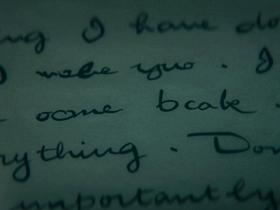 ing I have do
I make you . I
come back
rything . Don
mportantly